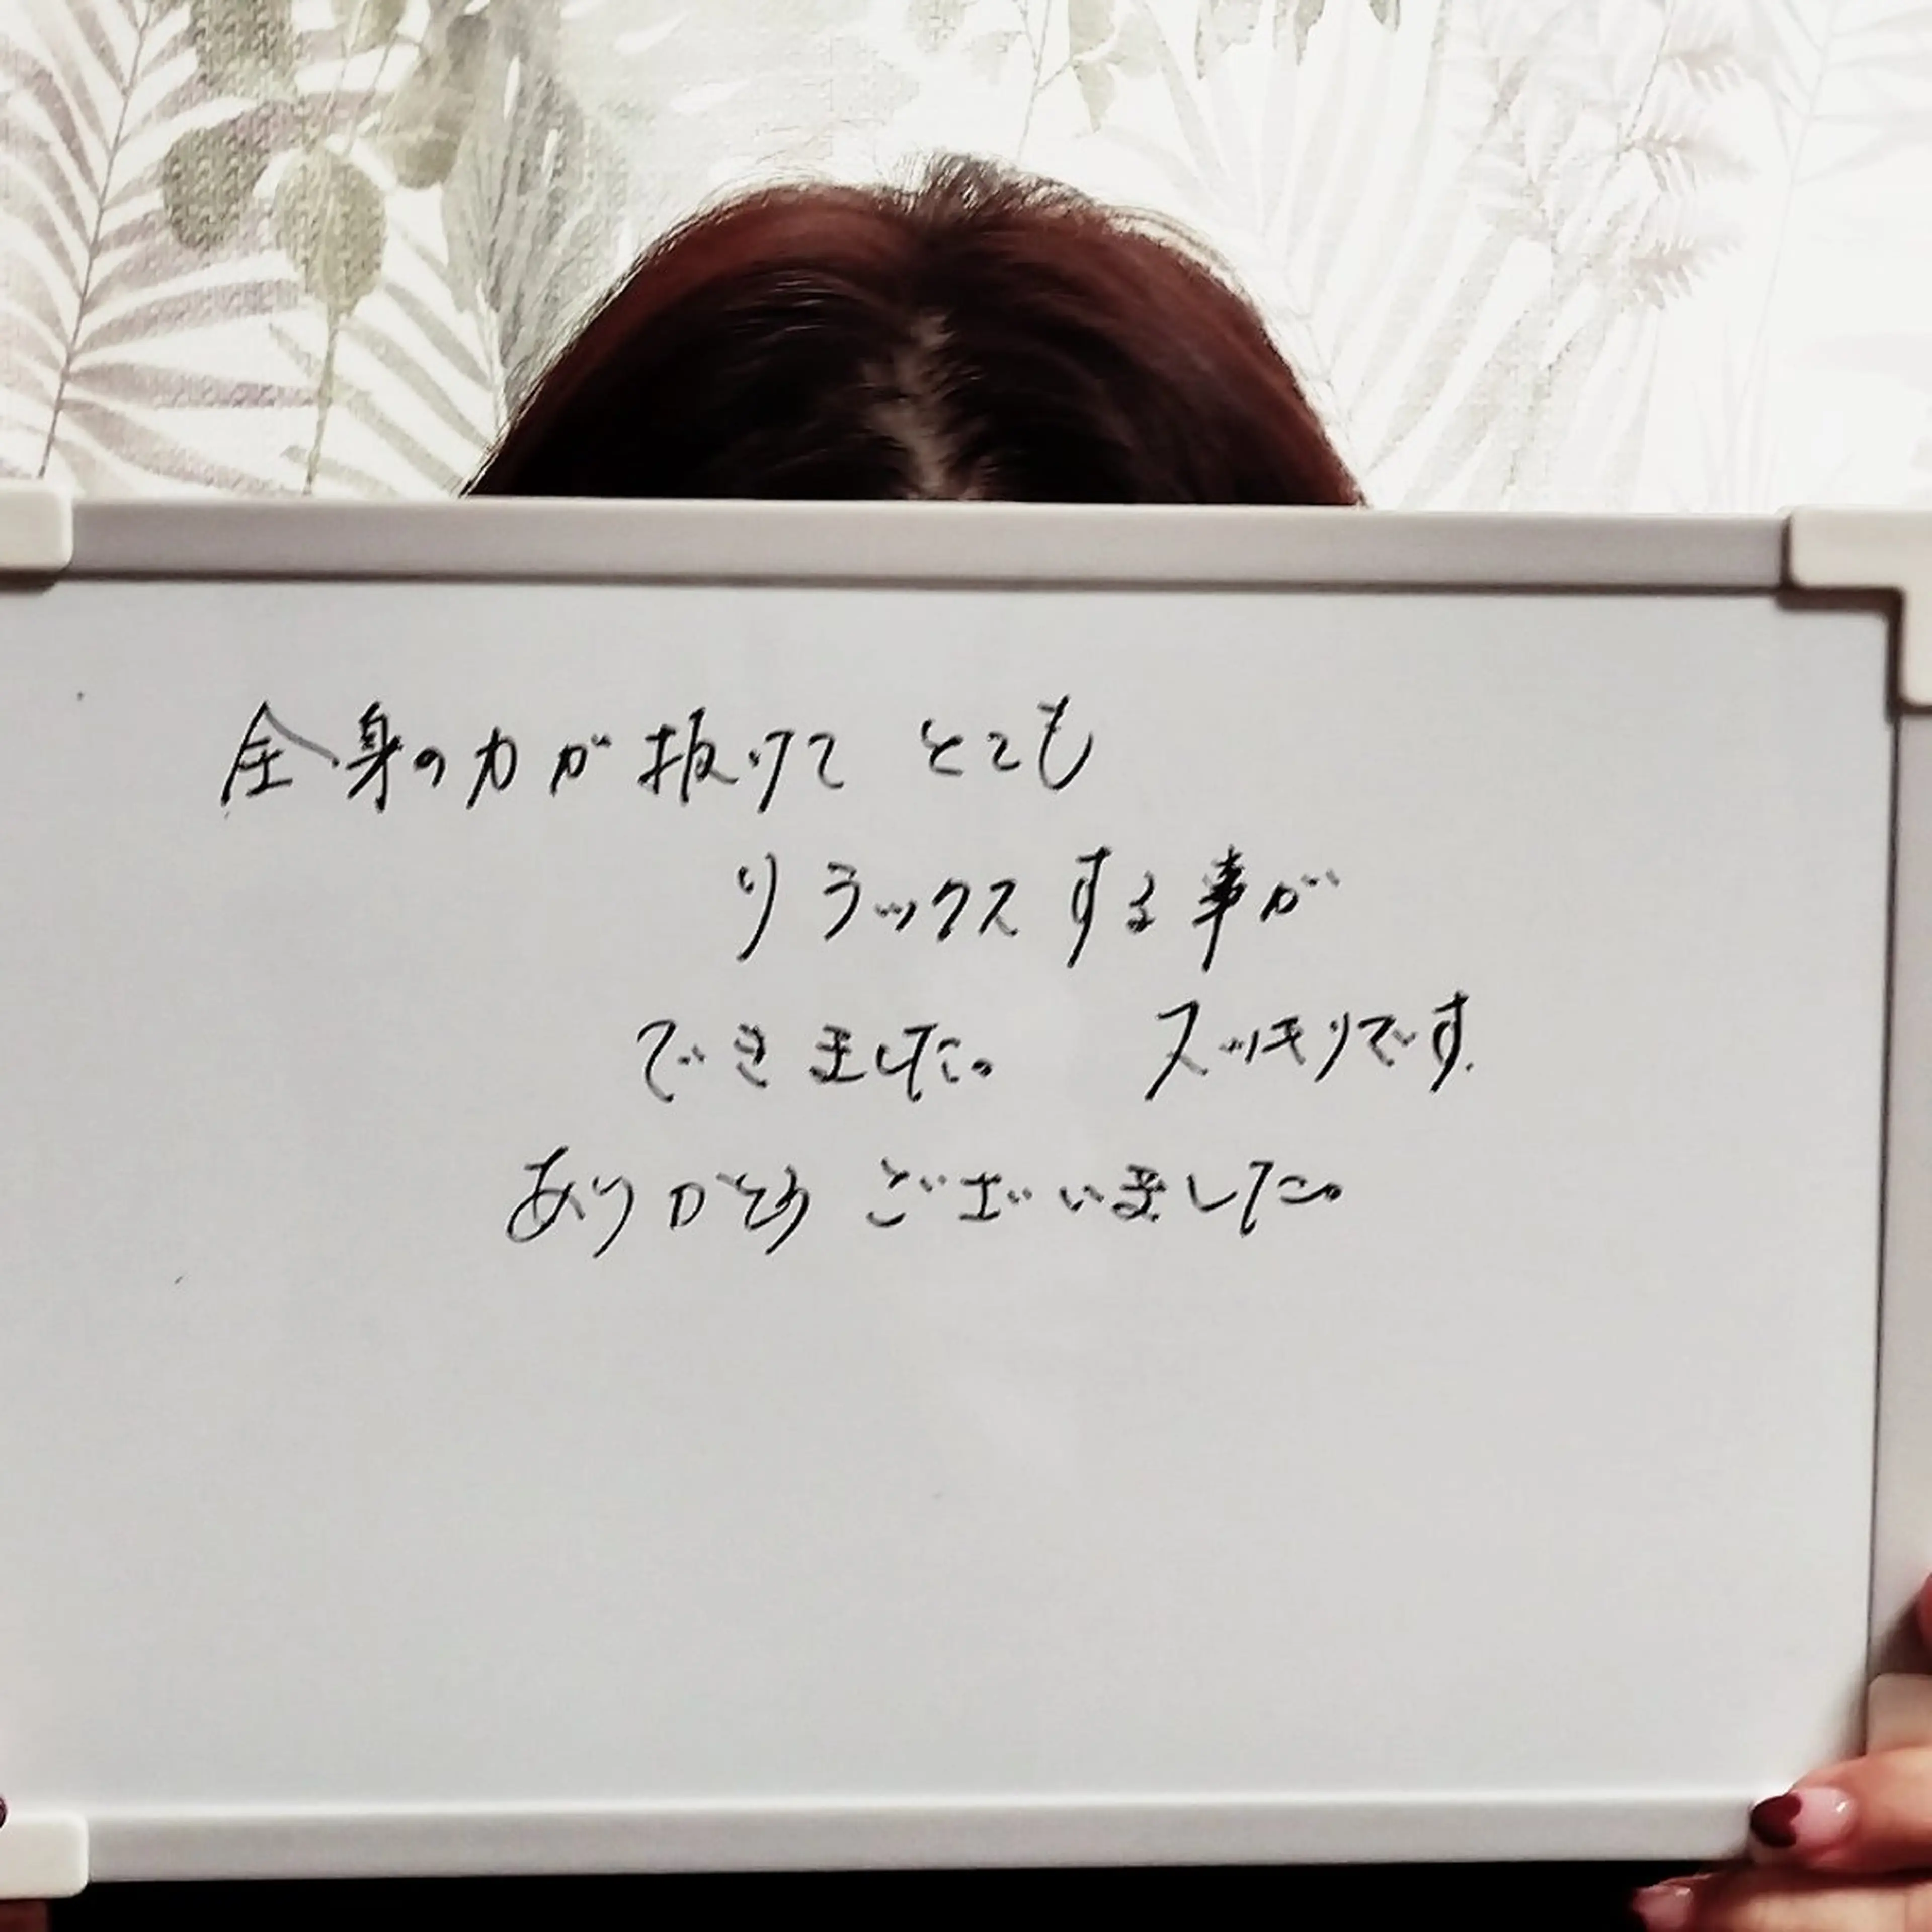 全身の力が抜けて とても
リラックスする事が
できました。 スッキリです.
ありがとう ございました。